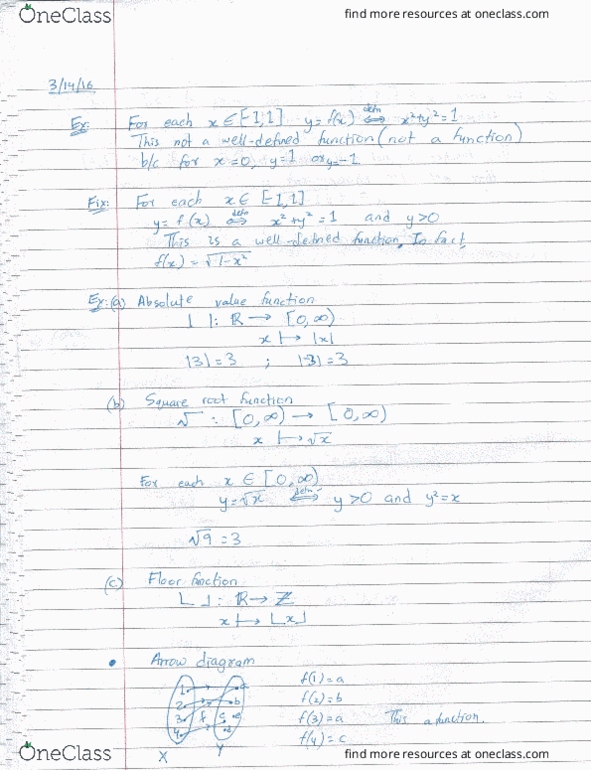 OneClass
find more resources at oneclass.com
3/14/16
Ex: For each x ∈ [-1,1] y = f(x) ⟺ defn x²+y²=1
This not a well-defined function (not a function)
b/c for x=0, y=1 or y=-1
Fix: For each x ∈ [-1,1]
y = f(x) ⟺ defn x²+y²=1 and y>0
This is a well-defined function. In fact,
f(x) = √1-x²
Ex: (a) Absolute value function
| |: ℝ → [0,∞)
x ↦ |x|
|3|=3 ; |-3|=3
(b) Square root function
√ : [0,∞) → [0,∞)
x ↦ √x
For each x ∈ [0,∞)
y=√x ⟺ defn y>0 and y²=x
√9 = 3
(c) Floor function
⌊ ⌋: ℝ → ℤ
x ↦ ⌊x⌋
• Arrow diagram
1 a f(1)=a
2 b f(2)=b
3 f c f(3)=a This a function.
4 d f(4)=c
X Y
OneClass
find more resources at oneclass.com